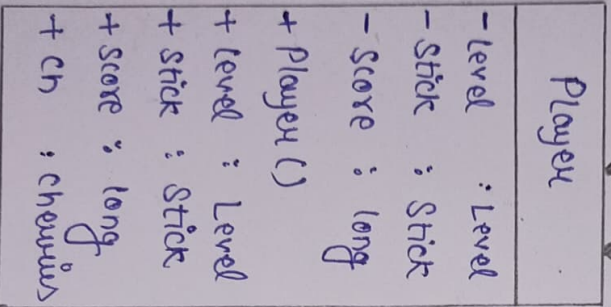 Player
- level : Level
- Stick : Stick
- Score : long
+ Player ()
+ level : Level
+ Stick : Stick
+ Score : long
+ Ch : Cherries